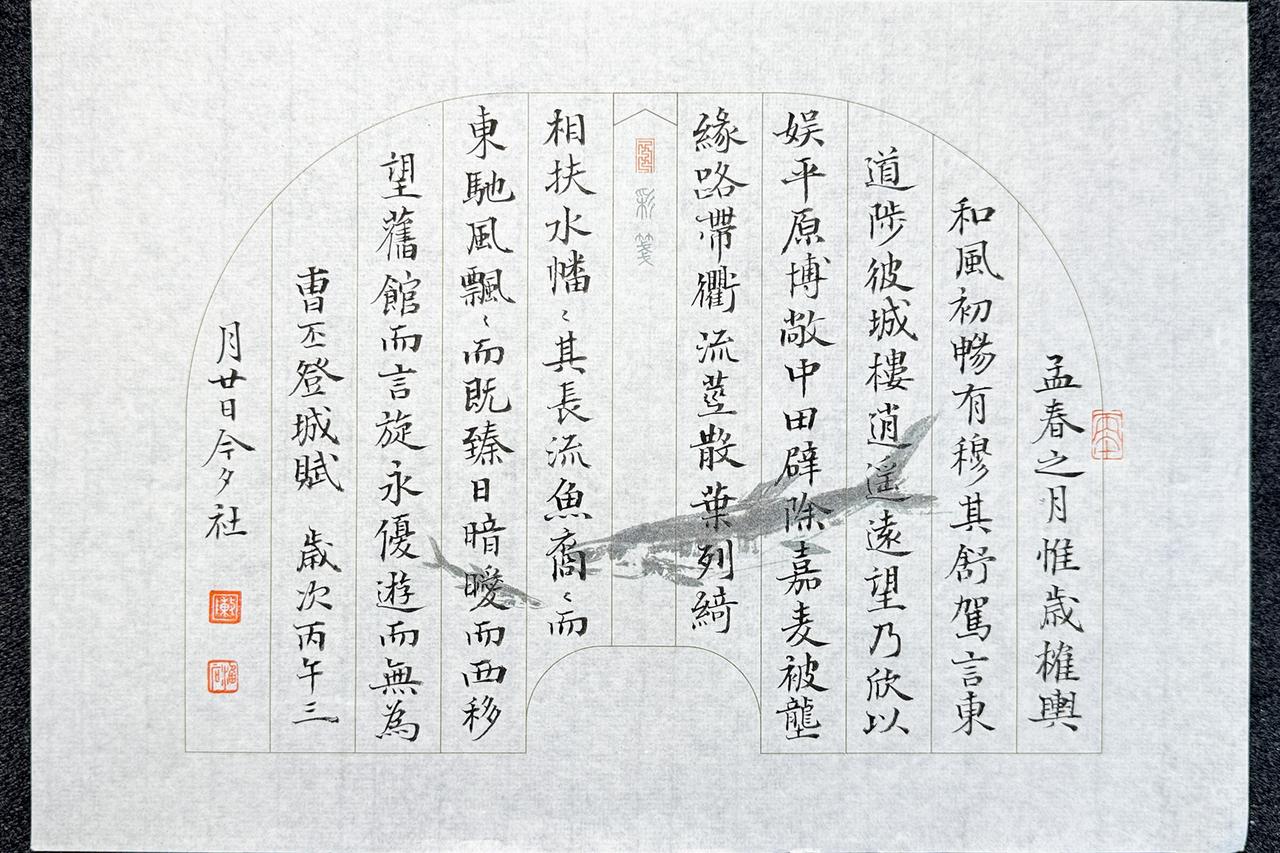 孟春之月惟歲権輿
和風初暢有穆其舒駕言東
道陟彼城樓逍遥遠望乃欣以
娱平原博敞中田辟除嘉麦被壟
緣路帶衢流莖散葉列綺
彩箋
相扶水幡〻其長流魚裔〻而
東馳風飄〻而既臻日暗曖而西移
望舊館而言旋永優遊而無為
曹丕登城賦 歲次丙午三
月廿日今夕社